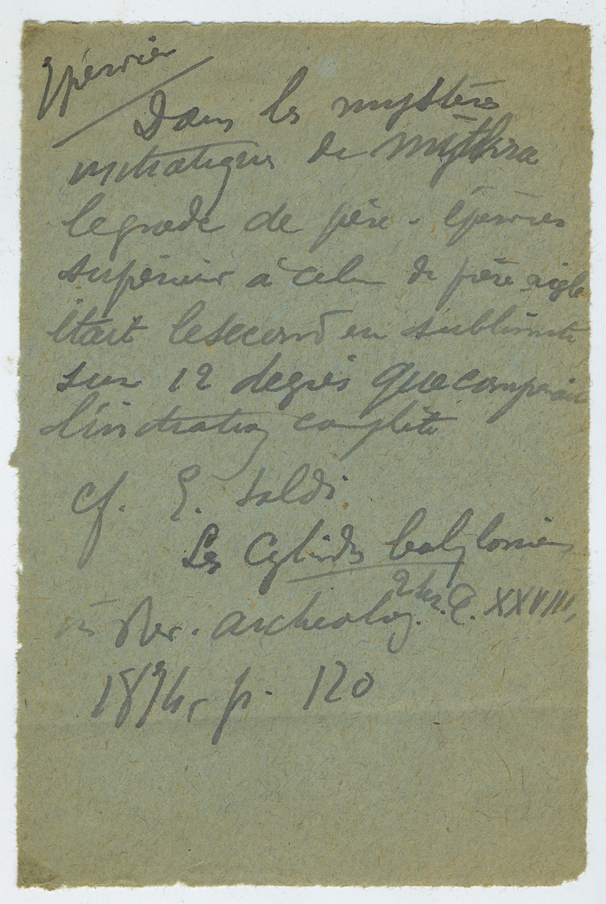 Epervier
Dans les mystères
initiatiques de Mythra
le grade de père-épervier
supérieur à celui de père aigle
était le second en sublimité
sur 12 degrés que comprenait
l'initiation complète
cf. E. Soldi
Les Cylindres babyloniens
in Rev. archéolog. XXVIII,
1874, p. 120